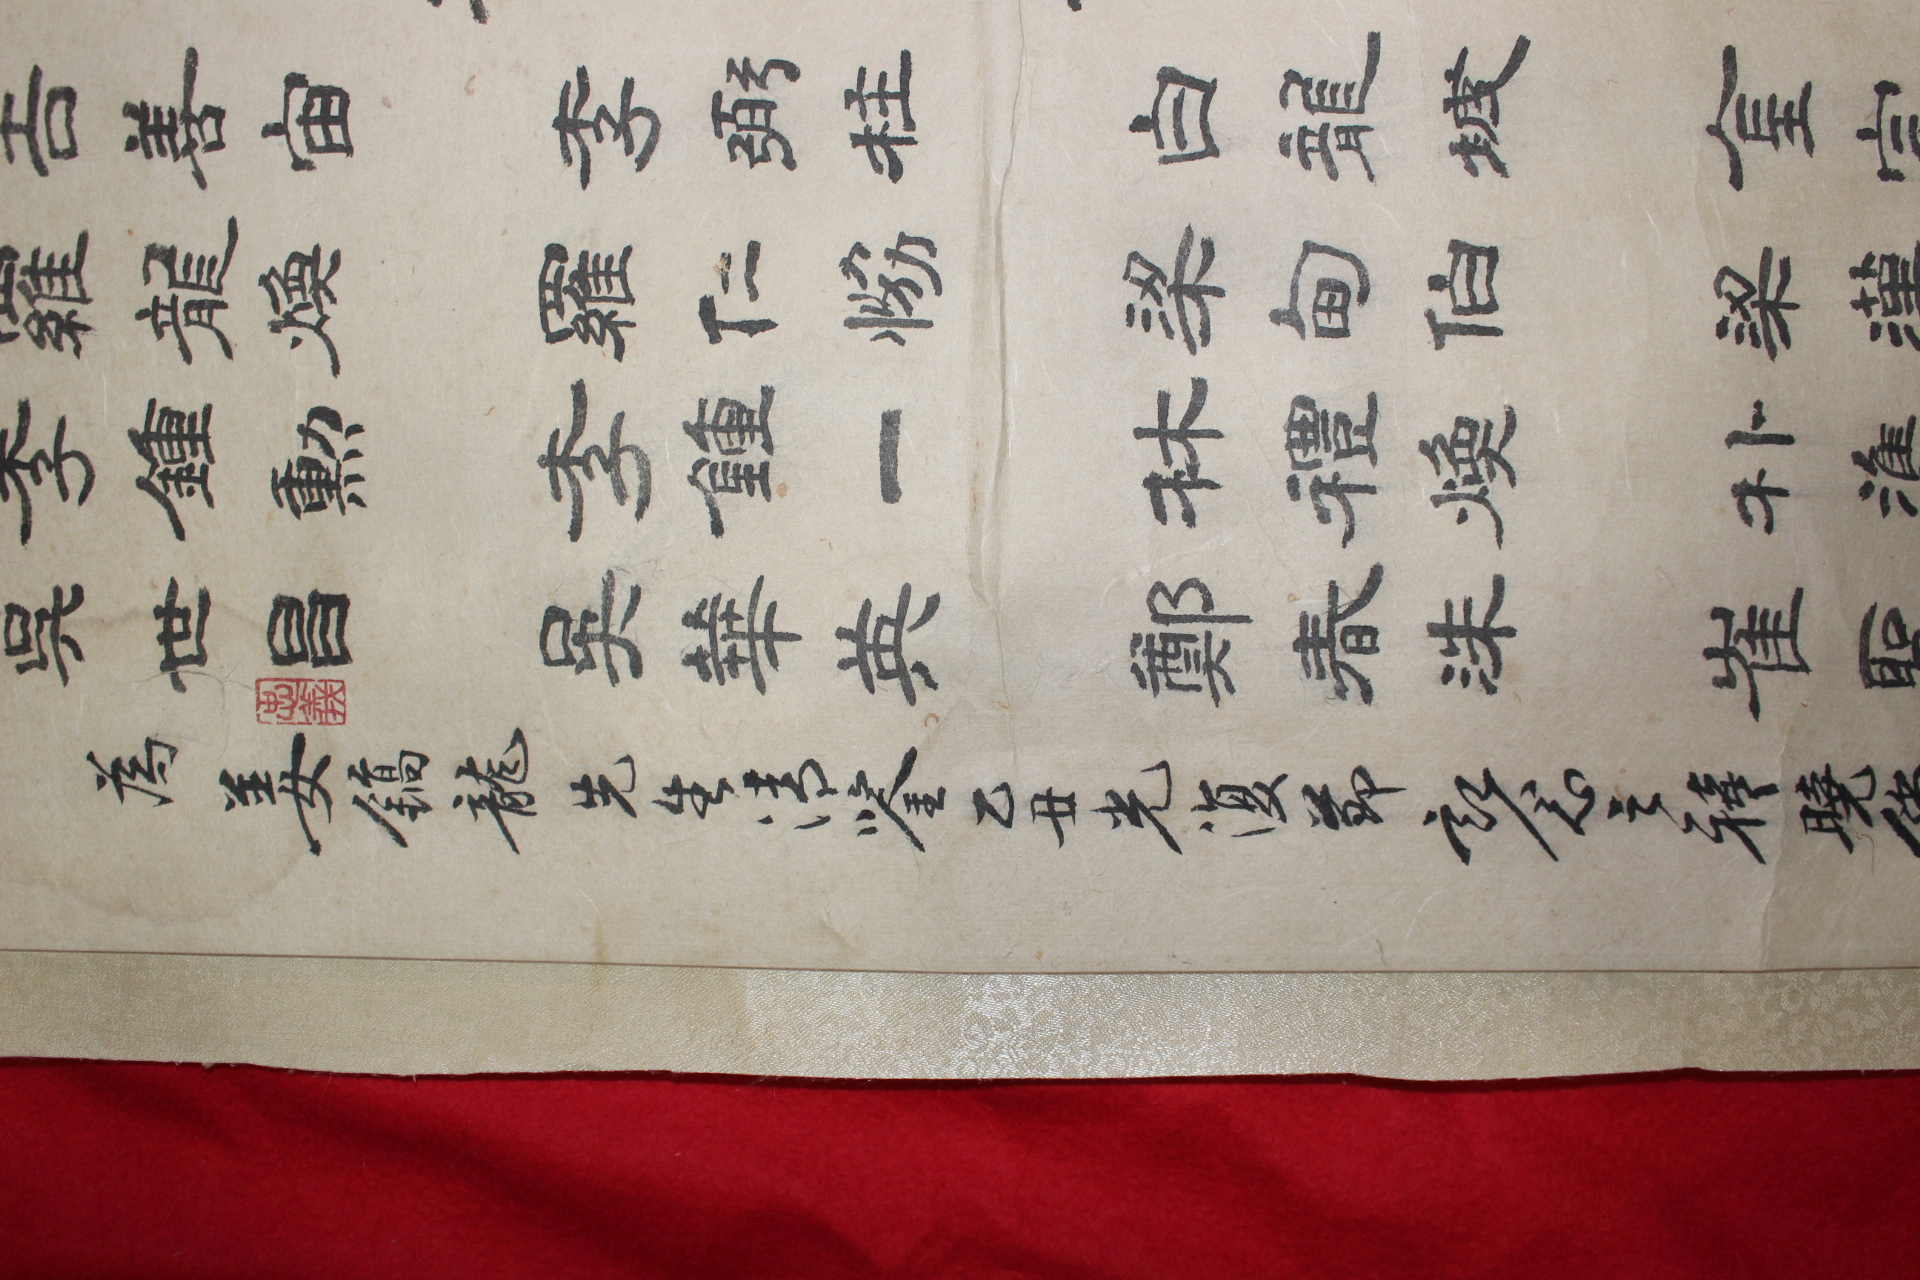 吉善宙 李弼柱 白龍城 金宗
羅龍煥 羅仁協 梁甸伯 梁漢
李鍾勳 李鍾一 林禮煥 朴準
吳世昌 吳華英 鄭春洙 崔聖
忠義
為 姜鎬龍先生清鑒 乙丑光復節記念之禧 曉